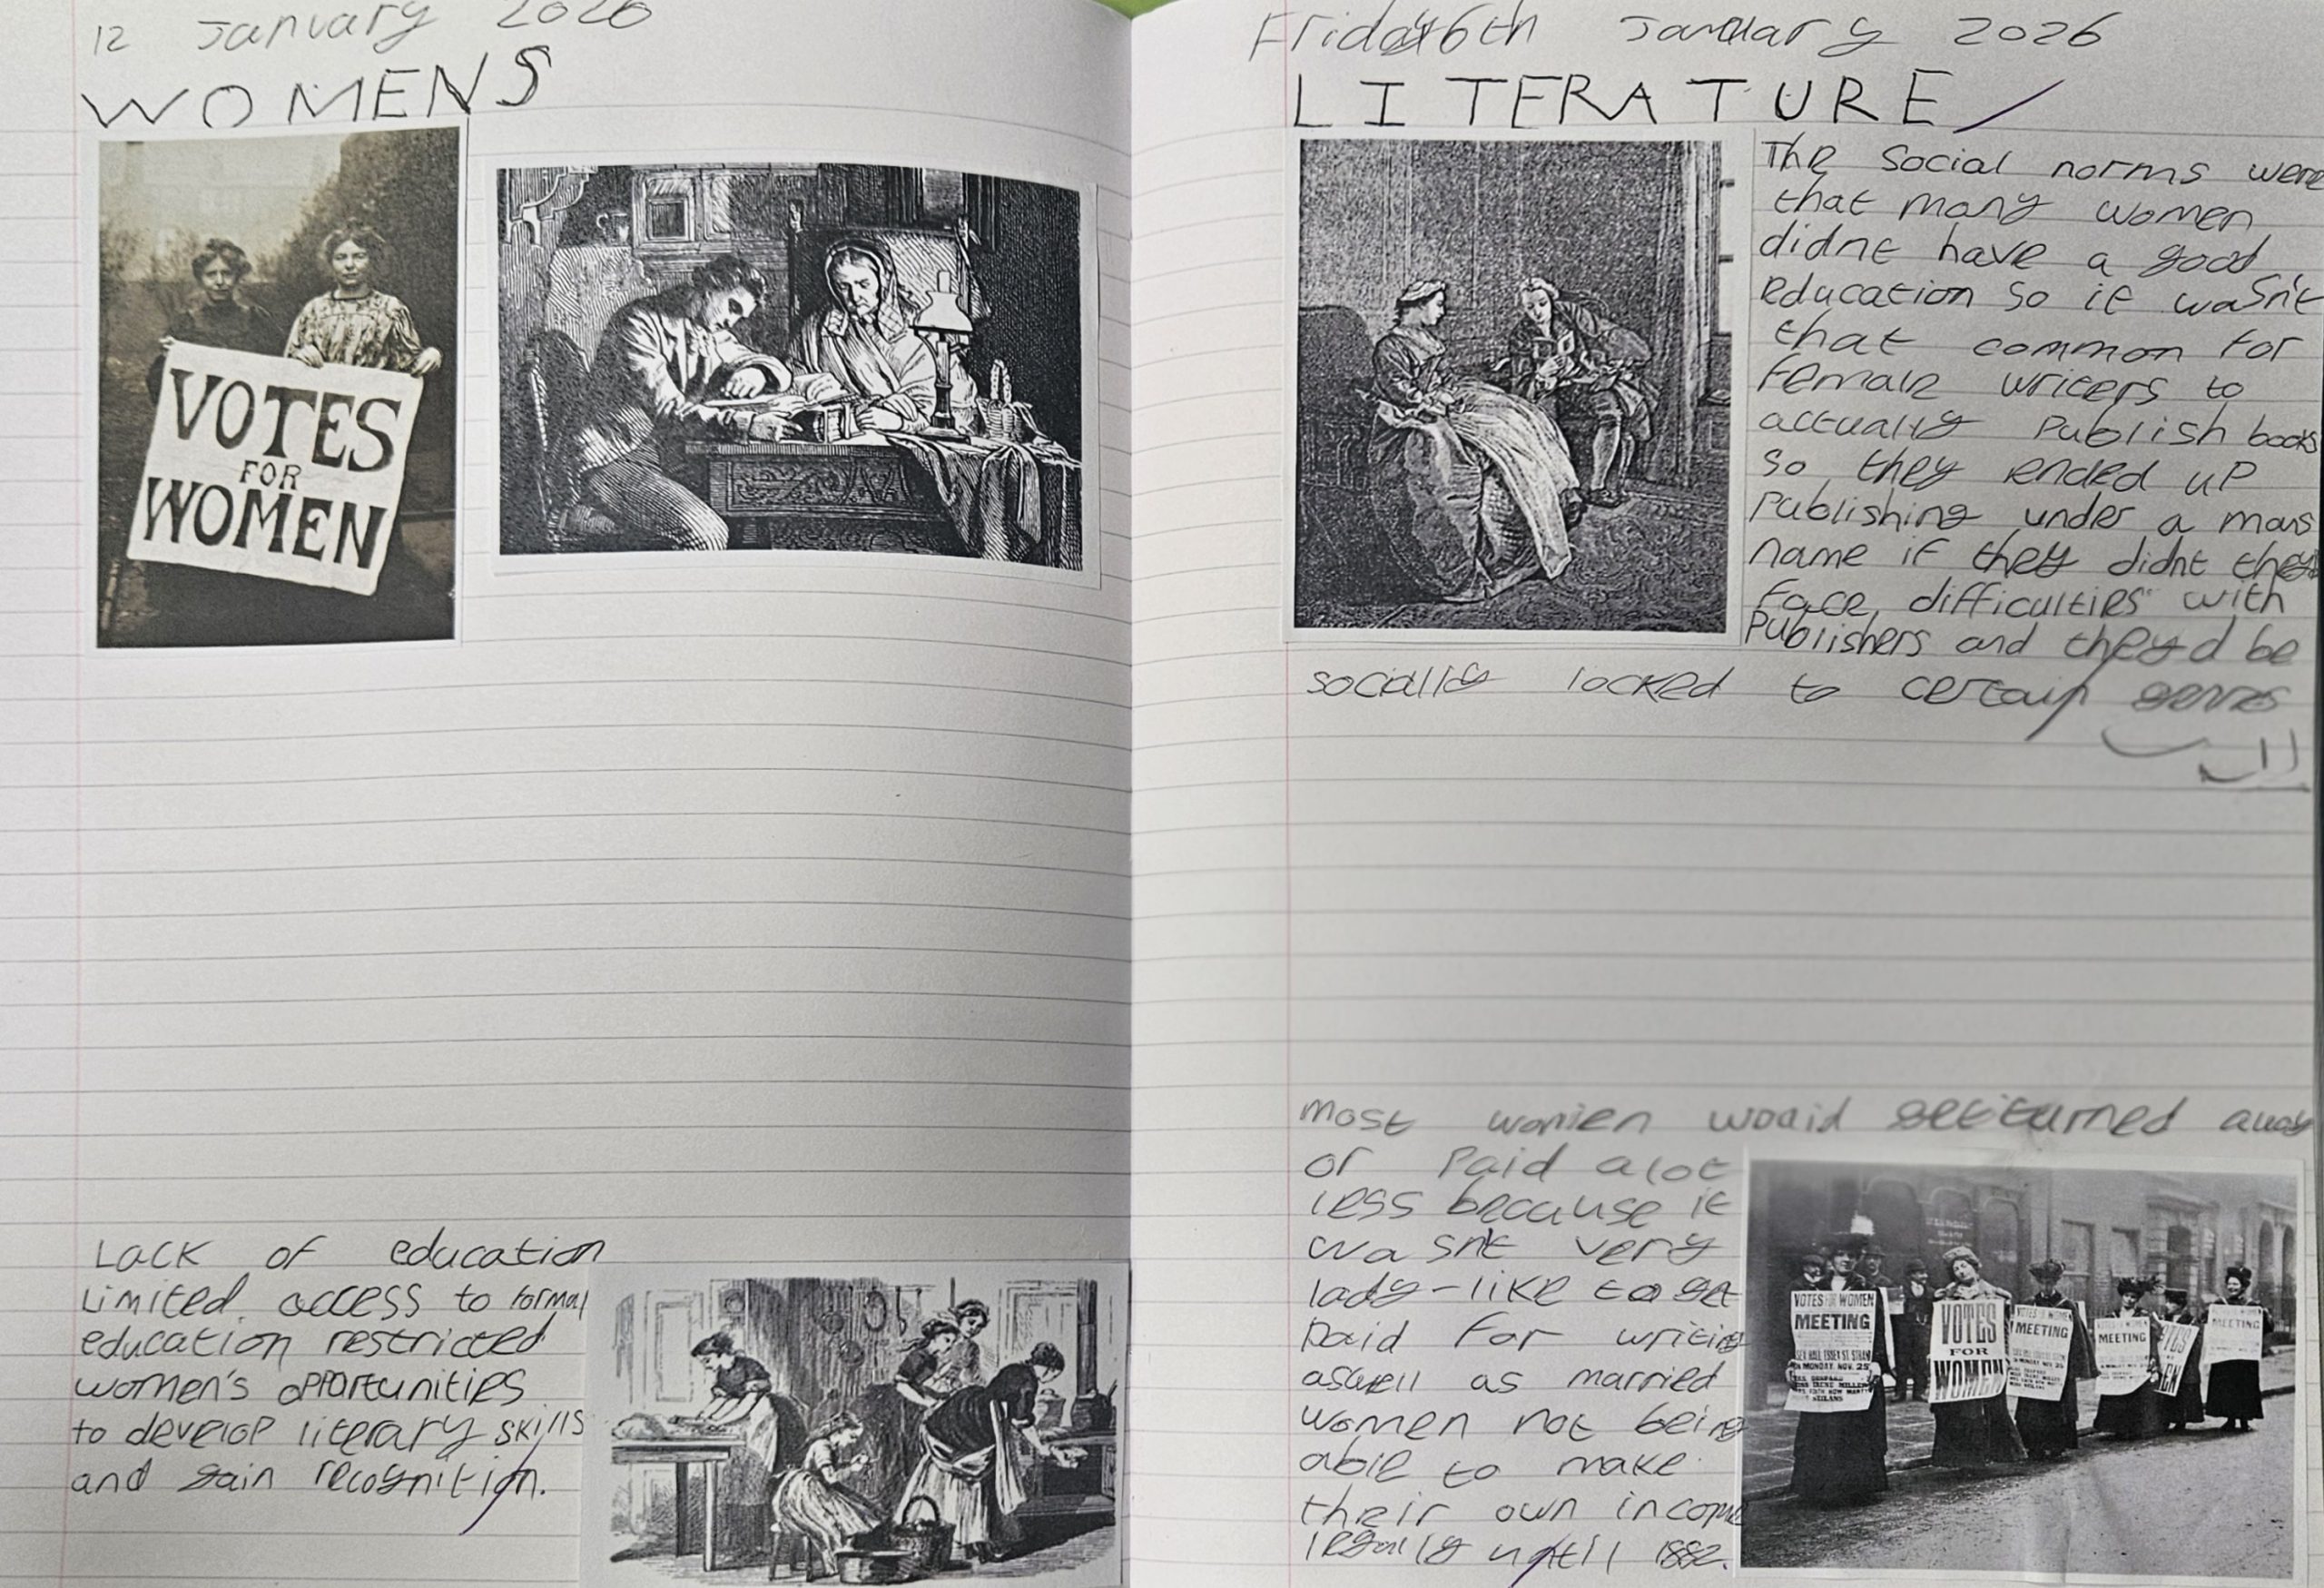 12 January 2026
WOMENS
VOTES
FOR
WOMEN
Lack of education
Limited access to formal
education restricted
women's opportunities
to develop literary skills
and gain recognition.
Friday 16th January 2026
LITERATURE
The social norms were
that many women
didnt have a good
education so it wasn't
that common for
female writers to
actually publish books
so they ended up
publishing under a mans
name if they didnt they
face difficulties with
publishers and they'd be
socially locked to certain genres
most women would get turned away
or paid alot
less because it
wasn't very
lady-like to get
paid for writing
aswell as married
women not being
able to make
their own income
legally until 1882.
VOTES FOR WOMEN
MEETING
ESSEX HALL ESSEX ST. STRAND
ON MONDAY. NOV. 25
VOTES
FOR
WOMEN
VOTES FOR WOMEN
MEETING
VOTES FOR WOMEN
MEETING
MEETING